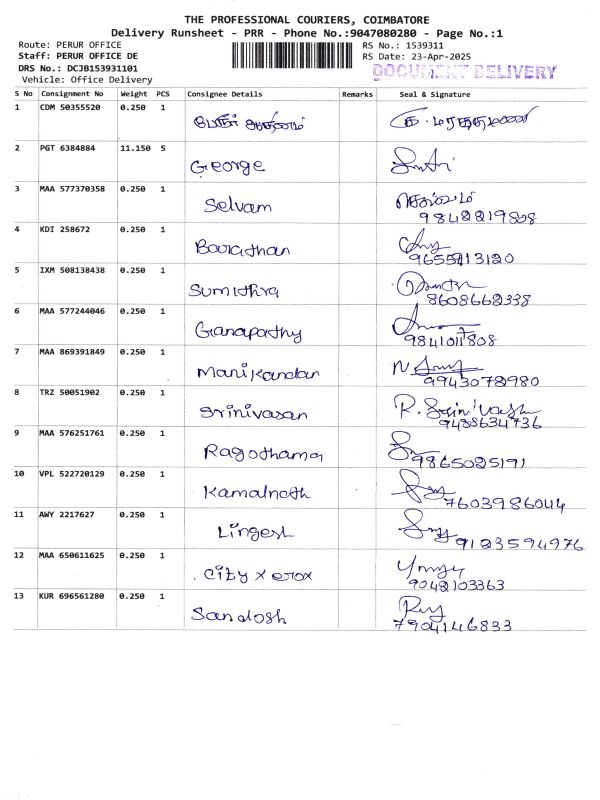 THE PROFESSIONAL COURIERS, COIMBATORE
Delivery Runsheet - PRR - Phone No.:9047080280 - Page No.:1
Route: PERUR OFFICE RS No.: 1539311
Staff: PERUR OFFICE DE RS Date: 23-Apr-2025
DRS No.: DCJB153931101 DOCUMENT DELIVERY
Vehicle: Office Delivery
S No Consignment No Weight PCS Consignee Details Remarks Seal & Signature
1 CDM 50355520 0.250 1
2 PGT 6384884 11.150 5
George
3 MAA 577370358 0.250 1
Selvam செல்வம்
9842219808
4 KDI 258672 0.250 1
Barathan
5 IXM 508138438 0.250 1
Sumithra
8608662338
6 MAA 577244046 0.250 1
Ganapathy
7 MAA 869391849 0.250 1
Manikandan
9943078980
8 TRZ 50051902 0.250 1
Srinivasan
9 MAA 576251761 0.250 1
Ragothaman
9865025191
10 VPL 522720129 0.250 1
Kamalnath
7603986044
11 AWY 2217627 0.250 1
Lingesh
9123594976
12 MAA 650611625 0.250 1
City xerox
9042103363
13 KUR 696561280 0.250 1
Sandosh
7904146833